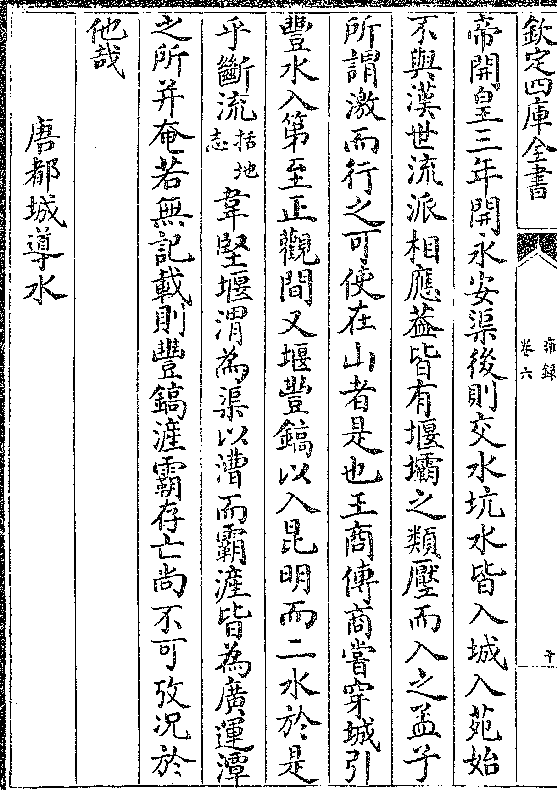 欽定四庫全書
雍錄
卷六
帝開皇三年開永安渠後則交水坑水皆入城入苑始
不與漢世流派相應葢皆有堰壩之類壓而入之孟子
所謂激而行之可使在山者是也王商傳商嘗穿城引
豐水入第至正觀間又堰豐鎬以入昆明而二水於是
乎斷流括地志韋堅堰渭為渠以漕而霸滻皆為廣運潭
之所并奄若無記載則豐鎬滻霸存亡尚不可攷况於
他哉
唐都城導水